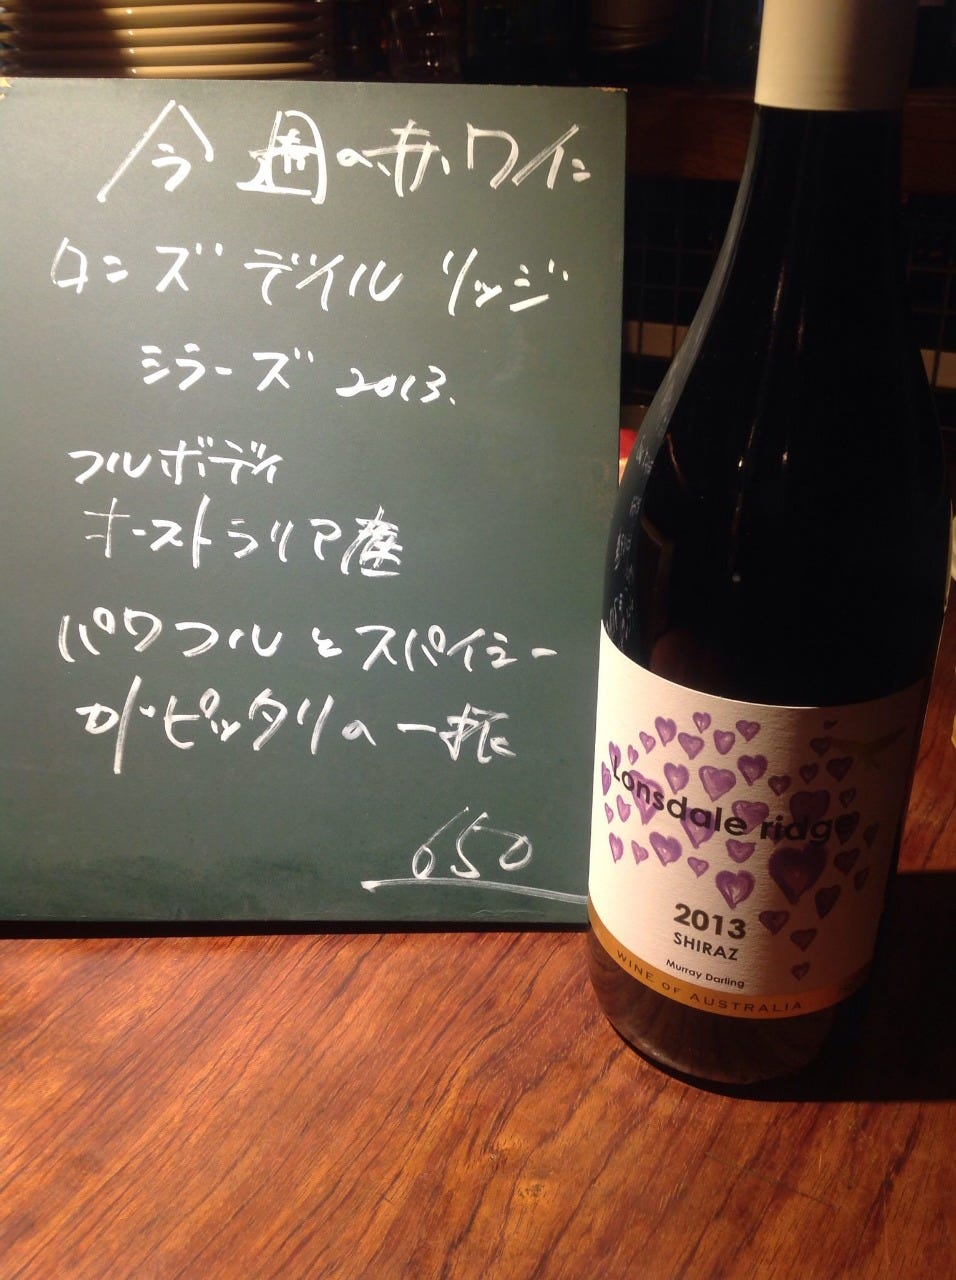 今週の赤ワイン
ロンズデイルリッジ
シラーズ 2013.
フルボディ
オーストラリア産
パワフルとスパイシー
が、ピッタリの一振
650
Lonsdale ridge
2013
SHIRAZ
Murray Darling
WINE OF AUSTRALIA